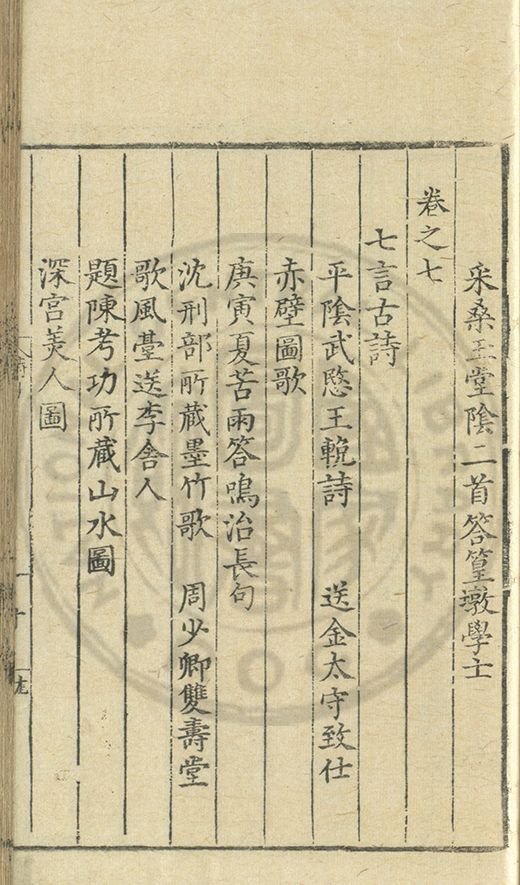 采桑玉堂陰二首答篁墩學士
卷之七
七言古詩
平陰武愍王輓詩　送金太守致仕
赤壁圖歌
庚寅夏苦雨答鳴治長句
沈刑部所藏墨竹歌　周少卿雙壽堂
歌風臺送李舍人
題陳考功所藏山水圖
深宮美人圖